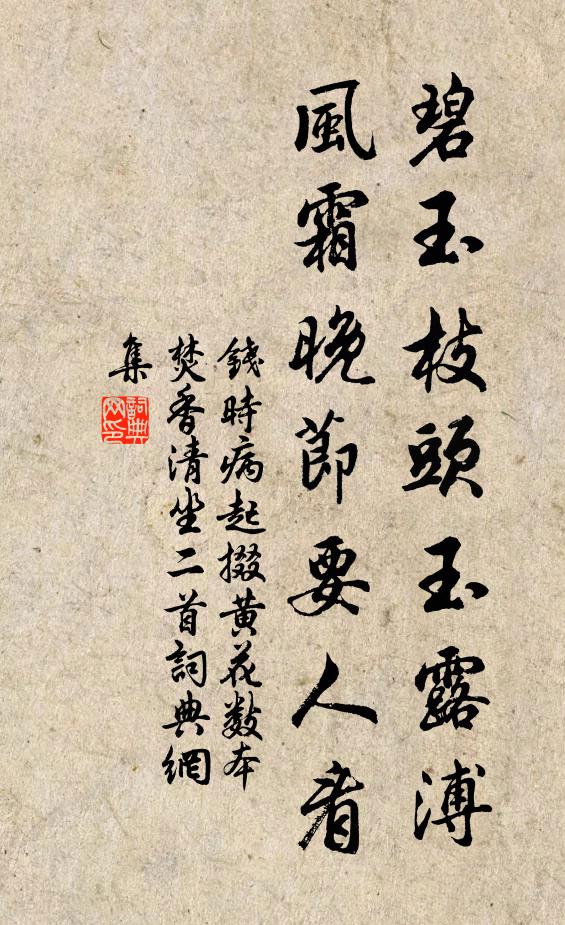 碧玉枝頭玉露溥
風霜晚節要人看
錢時病起掇黃花數本
焚香清坐二首詞典網
集
詞典網印